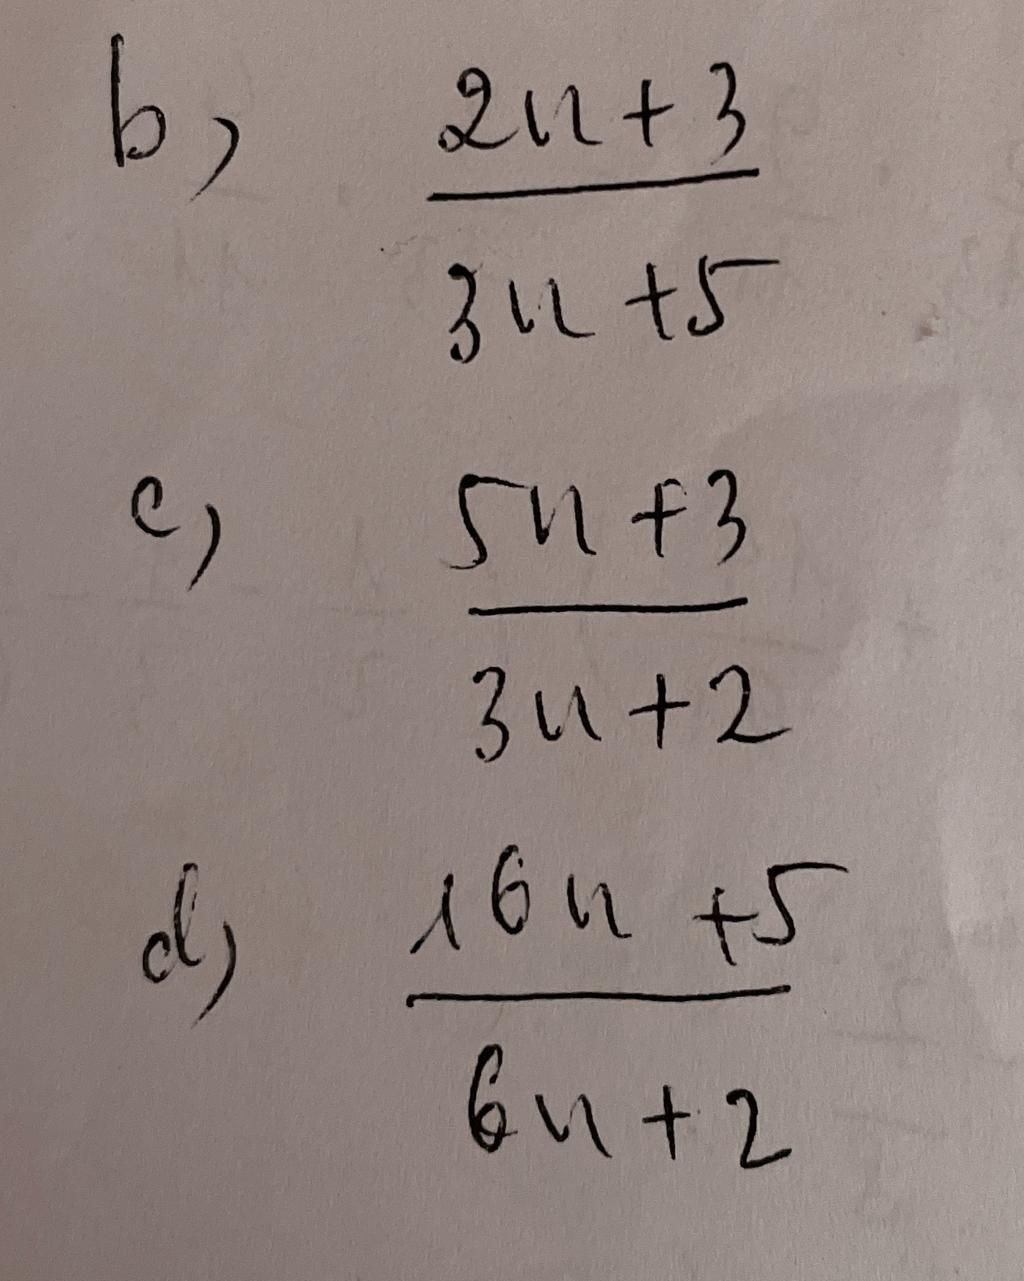 b, 2n+3
3n+5
c, 5n+3
3n+2
d, 16n+5
6n+2